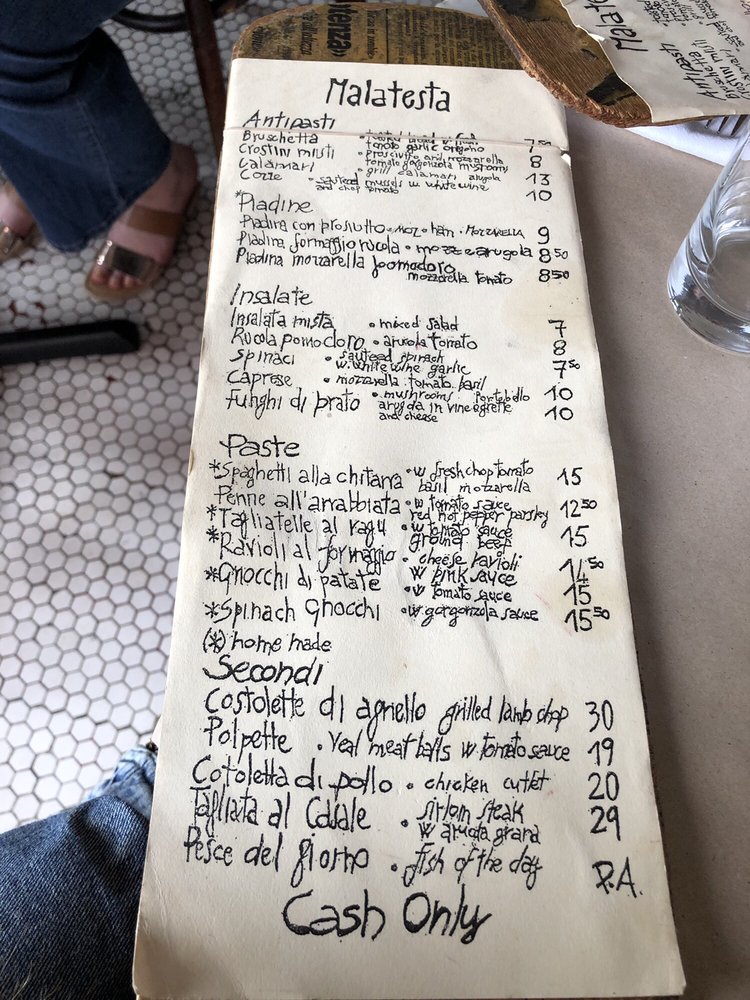 Malatesta
Antipasti
Bruschetta • tomato garlic oregano 7 50
Crostini misti • prosciutto and mozzarella 8
tomato gorgonzola mushrooms
Calamari • grill calamari arugula 13
Cozze • sauteed mussels w white wine 10
and chop tomato
*Piadine
Piadina con prosciutto • moz • ham • mozzarella 9
Piadina formaggio rucola • mozz e arugola 8 50
Piadina mozzarella pomodoro 8 50
mozzarella tomato
Insalate
Insalata mista • mixed salad 7
Rucola pomodoro • arucola tomato 8
Spinaci • sauteed spinach 7 50
w. white wine garlic
Caprese • mozzarella tomato basil 10
Funghi di prato • mushrooms portobello 10
arugola in vinegrette
and cheese
Paste
*Spaghetti alla chitarra • w fresh chop tomato 15
basil mozzarella
Penne all'arrabbiata • w tomato sauce 12 50
red hot pepper parsley
*Tagliatelle al ragu • w tomato sauce 15
ground beef
*Ravioli al formaggio • cheese ravioli 14 50
w pink sauce
*Gnocchi di patate • w tomato sauce 15
*Spinach Gnocchi • w gorgonzola sauce 15 50
(*) home made
Secondi
Costolette di agnello grilled lamb chop 30
Polpette • Veal meat balls w tomato sauce 19
Cotoletta di pollo • chicken cutlet 20
Tagliata al Casale • sirloin steak 29
w arugola grana
Pesce del giorno • fish of the day P.A.
Cash Only
Malate
Antipasti